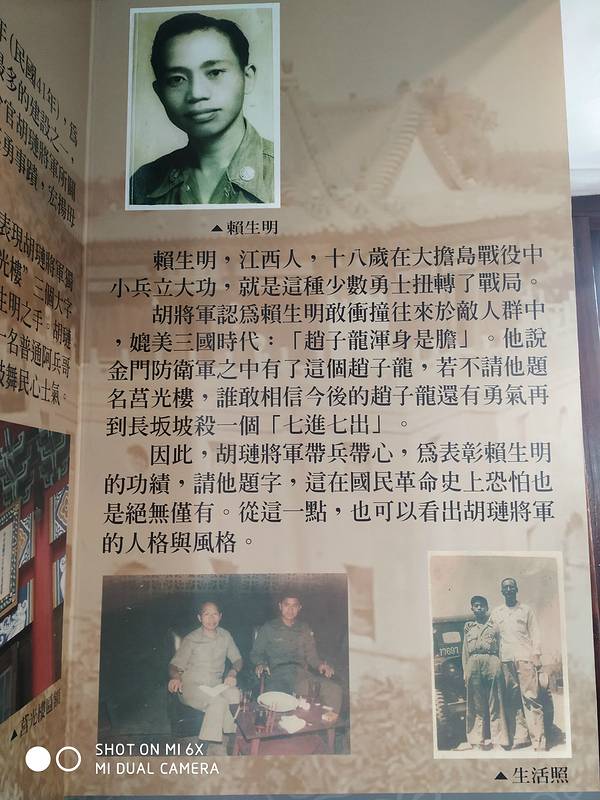 年(民國41年),為
最多的建設之一,
官胡璉將軍所闢
勇事蹟,宏揚母
表現胡璉將軍獨
光樓”三個大字
生明之手。胡璉
一名普通阿兵哥
鼓舞民心士氣。
▲賴生明
賴生明,江西人,十八歲在大擔島戰役中
小兵立大功,就是這種少數勇士扭轉了戰局。
胡將軍認爲賴生明敢衝撞往來於敵人群中
,媲美三國時代:「趙子龍渾身是膽」。他說
金門防衛軍之中有了這個趙子龍,若不請他題
名莒光樓,誰敢相信今後的趙子龍還有勇氣再
到長坂坡殺一個「七進七出」。
因此,胡璉將軍帶兵帶心,爲表彰賴生明
的功績,請他題字,這在國民革命史上恐怕也
是絕無僅有。從這一點,也可以看出胡璉將軍
的人格與風格。
17697
▲莒光樓匾額
▲生活照
SHOT ON MI 6X
MI DUAL CAMERA